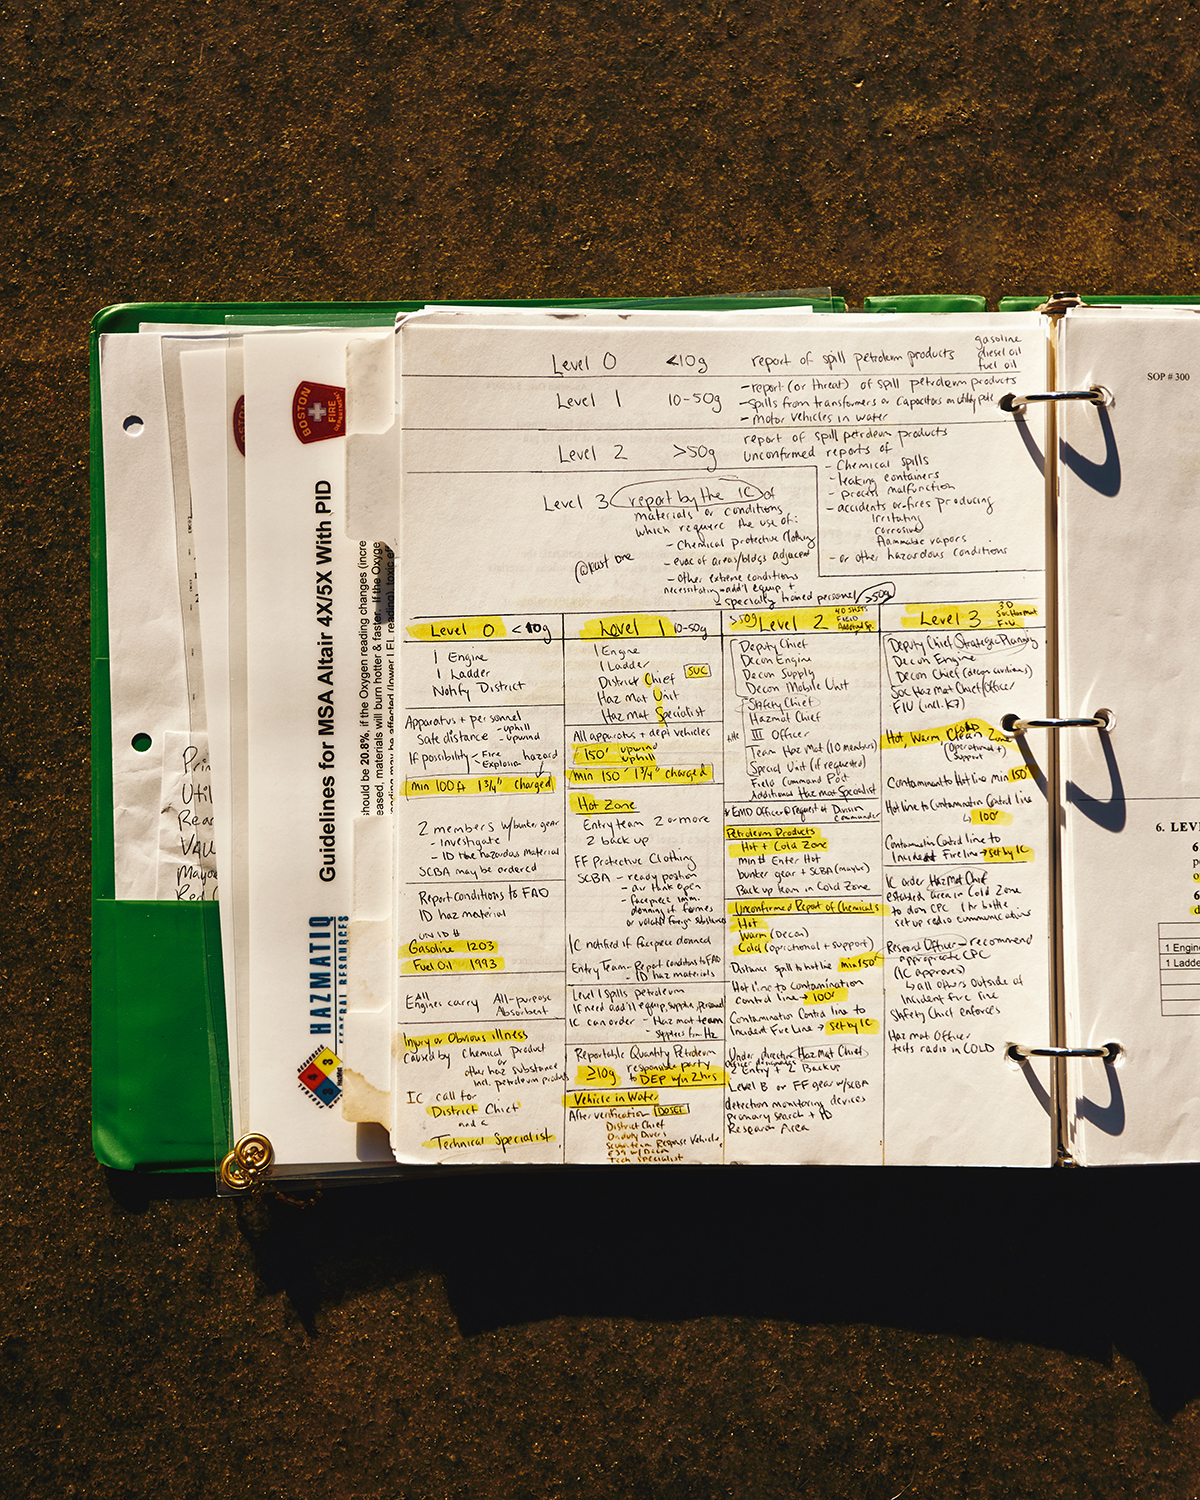 Level 0 <10g report of spill petroleum products gasoline
diesel oil
fuel oil
Level 1 10-50g - report (or threat) of spill petroleum products
- spills from transformers or capacitors on utility pole
- motor vehicles in water
Level 2 >50g report of spill petroleum products
unconfirmed reports of
- Chemical spills
- leaking containers
- process malfunction
- accidents or fires producing
irritating
corrosive
flammable vapors
- or other hazardous conditions
Level 3 report by the IC of
materials or conditions
which require the use of:
- Chemical protective clothing
@least one
- evac of areas/bldgs adjacent
- other extreme conditions
necessitating add'l equip +
specially trained personel >50g
Level 0 <10g
1 Engine
1 Ladder
Notify District
Apparatus + personnel
Safe distance - uphill
- upwind
If possibility - Fire hazard
- Explosion
min 100ft 1 3/4" charged
2 members w/bunker gear
- investigate
- ID the hazardous material
SCBA may be ordered
Report conditions to FAO
ID haz material
UN ID #
Gasoline 1203
Fuel Oil 1993
All
Engines carry All-purpose
Absorbent
Injury or Obvious illness
caused by chemical product
or
other haz substance
incl. petroleum products
IC call for
District Chief
and a
Technical Specialist
Level 1 10-50g
1 Engine
1 Ladder
District Chief SUC
Haz Mat Unit
Haz Mat Specialist
All apparatus + dept vehicles
150' upwind
uphill
min 150' 1 3/4" charged
Hot Zone
Entry team 2 or more
2 back up
FF Protective Clothing
SCBA - ready position
- air tank open
- facepiece imm.
donning if fumes
or volatile foreign substances
IC notified if facepiece donned
Entry Team - Report conditions to FAO
- ID haz materials
Level 1 spills petroleum
If need add'l equip, supplies, personnel
IC can order - Haz mat team
- supplies from Hz
Reportable Quantity Petroleum
≥10g responsible party
to DEP w/n 2 hrs
Vehicle in Water
After verification
District Chief
On duty Divers
Response Vehicle,
Tech Specialist
>50g Level 2
Deputy Chief
Decon Engine
Decon Supply
Decon Mobile Unit
Safety Chief
Hazmat Chief
III Officer
Team Haz Mat (10 members)
Special Unit (if requested)
Field Command Post
Additional Haz Mat Specialist
* EMD Officer @ request of Division
Commander
Petroleum Products
Hot + Cold Zone
min # Enter Hot
bunker gear + SCBA (maybe)
Back up team in Cold Zone
Unconfirmed Report of Chemicals
Hot
Warm (Decon)
Cold (operational + support)
Distance spill to hotline min 150'
Hot line to contamination
control line → 100'
Contamination Control line to
Incident Fire Line → set by IC
Under direction Haz Mat Chief
2 Entry + 2 Backup
Level B or FF gear w/SCBA
detection monitoring devices
primary search + ID
Research Area
Level 3
Deputy Chief Strategic Planning
Decon Engine
Decon Chief
Soc Haz Mat Chief/Officer
FIU (incl. K7)
Hot, Warm, Clean Zone
(operational +
support)
Containment to Hot line min 150'
Hot line to Contamination Control line
↳ 100'
Contamination Control line to
Incident Fire line → set by IC
IC order Haz Mat Chief
establish area in Cold Zone
to don CPC 1 hr bottle
set up radio communications
Research Officer - recommend
appropriate CPC
(IC approves)
↳ all others outside of
Incident fire line
Safety Chief enforces
Haz mat Officer
tests radio in COLD
BOSTON
FIRE
DEPARTMENT
Guidelines for MSA Altair 4X/5X With PID
should be 20.8%. if the Oxygen reading changes (incre
eased, materials will burn hotter & faster. If the Oxyge
HAZMATIQ
FEDERAL RESOURCES
4
3
SOP # 300
6. LEVE
1 Engine
1 Ladde